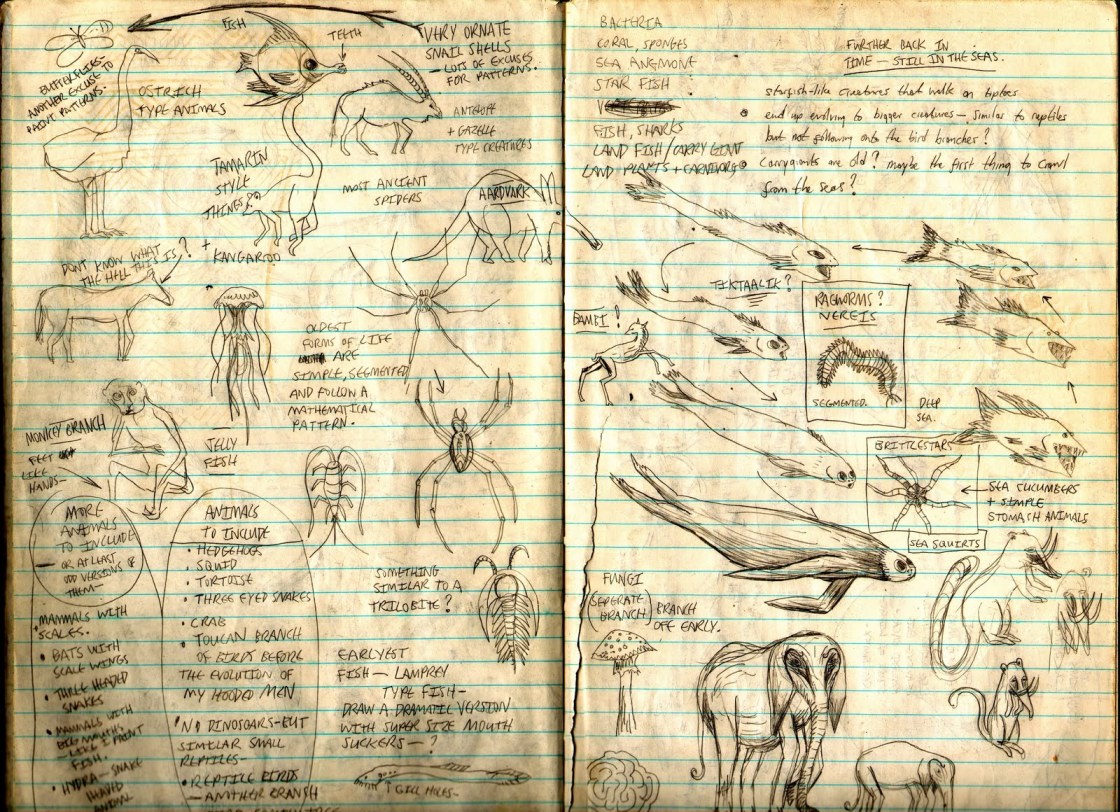 FISH
TEETH
VERY ORNATE
SNAIL SHELLS
— LOTS OF EXCUSES
FOR PATTERNS.
BUTTERFLIES-
ANOTHER EXCUSE TO
PAINT PATTERNS.
OSTRICH
TYPE ANIMALS
+ GAZELLE
TYPE CREATURES
TAMARIN
STYLE
THINGS?
MOST ANCIENT
SPIDERS
AARDVARK
DONT KNOW WHAT
THE HELL THIS IS?
+
KANGAROO
OLDEST
FORMS OF LIFE
ARE
SIMPLE, SEGMENTED
AND FOLLOW A
MATHEMATICAL
PATTERN.
MONKEY BRANCH
FEET
LIKE
HANDS-
JELLY
FISH
MORE
ANIMALS
TO INCLUDE
— OR AT LEAST
ODD VERSIONS OF
THEM-
MAMMALS WITH
SCALES.
• BATS WITH
SCALE WINGS
• THREE HEADED
SNAKES
• MAMMALS WITH
BIG MOUTHS
- LIKE I PAINT
FISH.
• HYDRA - SNAKE
HEADED
ANIMAL
ANIMALS
TO INCLUDE
• HEDGEHOGS
• SQUID
• TORTOISE
• THREE EYED SNAKES
• CRAB
• TOUCAN BRANCH
OF BIRDS BEFORE
THE EVOLUTION OF
MY HOODED MEN
• NO DINOSOARS-BUT
SIMILAR SMALL
REPTILES-
• REPTILE BIRDS
— ANOTHER BRANSH
SOMETHING
SIMILAR TO A
TRILOBITE?
EARLYEST
FISH — LAMPREY
TYPE FISH-
DRAW A DRAMATIC VERSION
WITH SUPER SIZE MOUTH
SUCKERS — ?
GILL HOLES-
BACTERIA
CORAL, SPONGES
SEA ANEMONE
STAR FISH
FISH, SHARKS
LAND FISH/CARRY GIANT
LAND PLANTS + CARNIVORS
FURTHER BACK IN
TIME — STILL IN THE SEAS.
starfish-like creatures that walk on tiptoes
• end up evolving to bigger creatures — similar to reptiles
but not following onto the bird branches?
• Carrygiants are old? maybe the first thing to crawl
from the seas?
TIKTAALIK?
BAMBI?
RAGWORMS?
NEREIS
SEGMENTED.
DEEP
SEA.
BRITTLESTARS
SEA CUCUMBERS
+ SIMPLE
STOMACH ANIMALS
SEA SQUIRTS
FUNGI
(SEPERATE
BRANCH)
BRANCH
OFF EARLY.